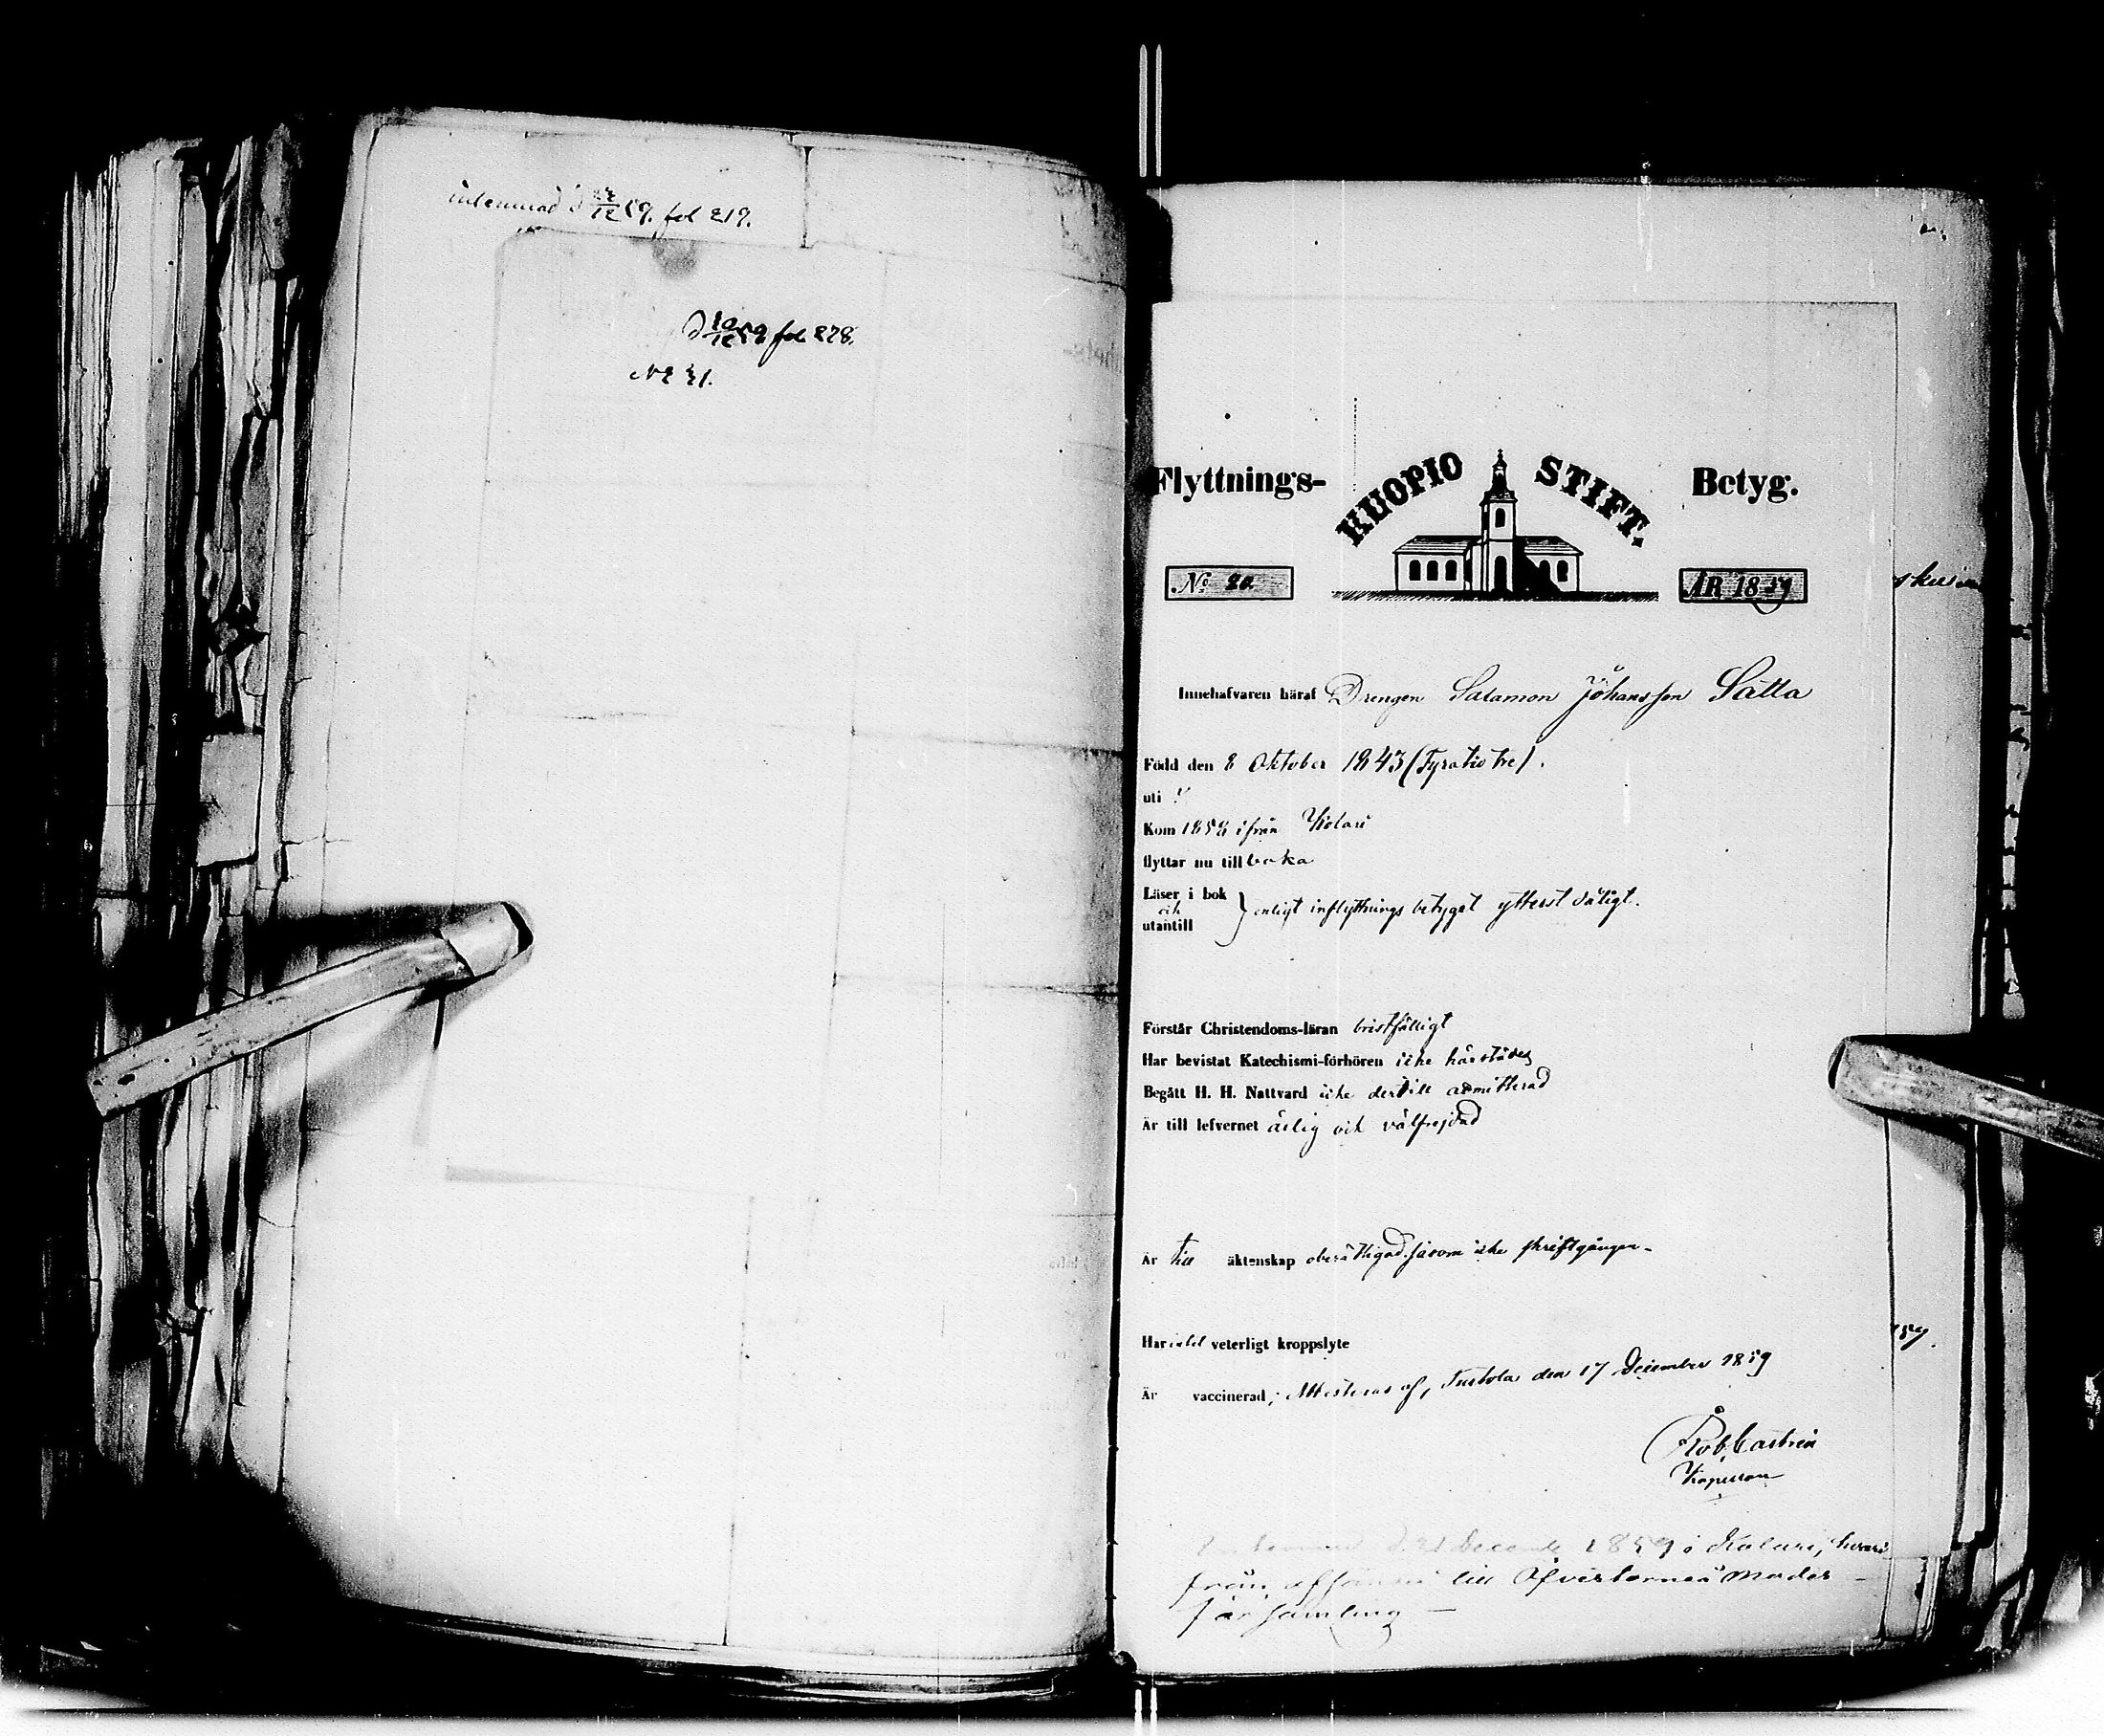 inlemnad d 22/12 59. fol 219.
d 10/12 59 fol 278.
N 31.
Flyttnings- KUOPIO STIFT. Betyg.
No 20. ÅR 1859
Innehafvaren häraf Drengen Salamon Johansson Sátta
Född den 8 Oktober 1843 (Fyratio tre).
uti
Kom 1858 ifrån Kolari
flyttar nu till baka
Läser i bok
och } enligt inflyttnings betyget ytterst dåligt.
utantill
Förstår Christendoms-läran bristfälligt
Har bevistat Katechismi-förhören icke härstädes
Begått H. H. Nattvard icke dertill admitterad
Är till lefvernet ärlig och välfrejdad
Är till äktenskap oberättigad såsom icke skriftgången
Har intet veterligt kroppslyte
Är vaccinerad; Attesteras af, Turtola den 17 December 1859
Rob. Castrén
Kapellan
59.
Inlemnad d. 21 Decemb 1859 i Kolari, hvari
från till Öfvertorneå Moder
församling